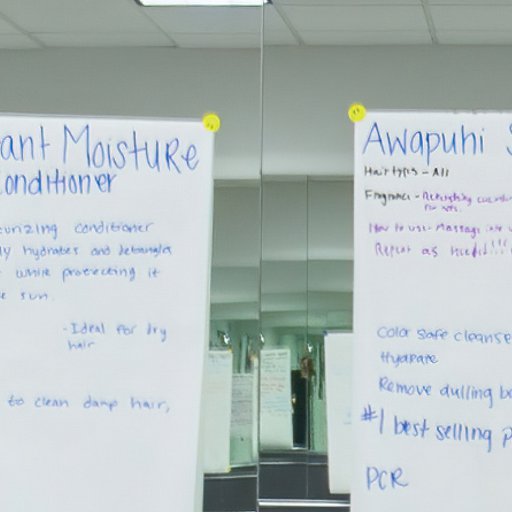 ant Moisture
onditioner
urizing conditioner
ly hydrates and detangles
while protecting it
e sun.
-Ideal for dry
hair
to clean damp hair,
Awapuhi S
Hair types - All
Fragrance - Refreshing
How to use - Massage into
Repeat as needed!!!
Color safe cleanse
Hydrate
Remove dulling b
#1 best selling p
PCR